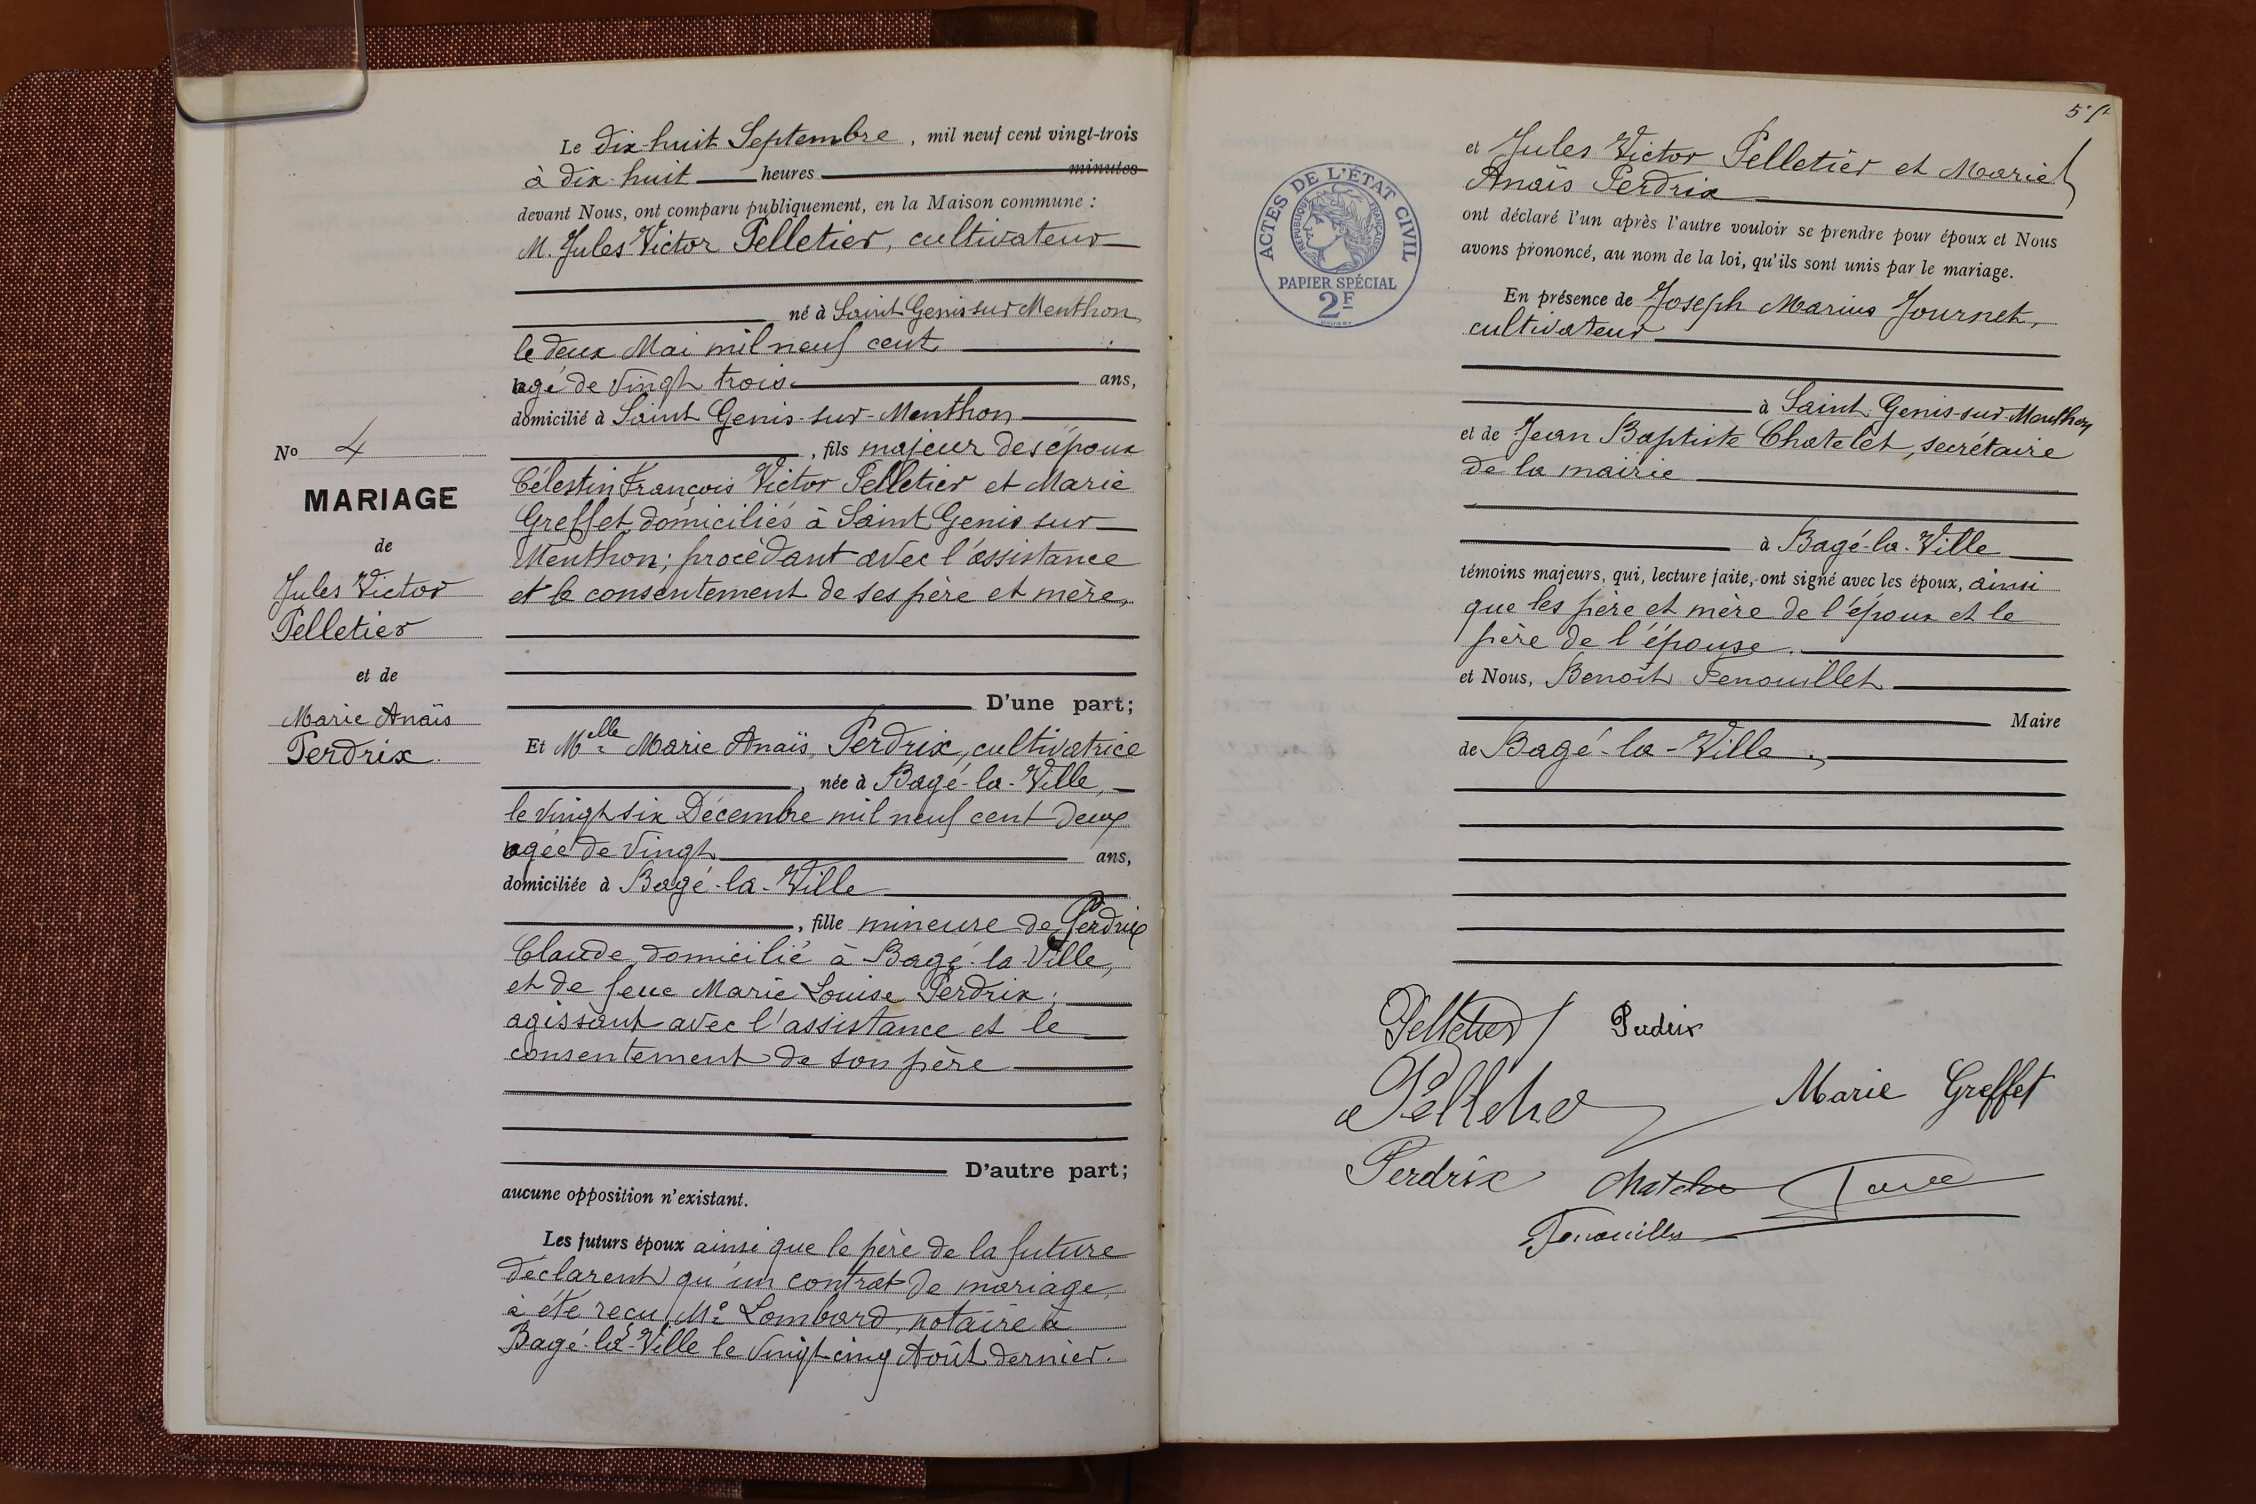 Le dix-huit Septembre, mil neuf cent vingt-trois
à dix-huit heures minutes
devant Nous, ont comparu publiquement, en la Maison commune :
M. Jules Victor Pelletier, cultivateur
né à Saint Genis-sur Menthon
le deux Mai mil neuf cent
agé de vingt trois ans,
domicilié à Saint Genis-sur-Menthon
, fils majeur des époux
Célestin François Victor Pelletier et Marie
Greffet domiciliés à Saint Genis sur
Menthon; procédant avec l'assistance
et le consentement de ses père et mère,
D'une part;
Et Melle Marie Anaïs Perdrix, cultivatrice
, née à Bagé-la-Ville,
le vingt six Décembre mil neuf cent deux
agée de vingt ans,
domiciliée à Bagé-la-Ville
, fille mineure de Perdrix
Claude domicilié à Bagé-la Ville,
et de feue Marie Louise Perdrix;
agissant avec l'assistance et le
consentement de son père
D'autre part;
aucune opposition n'existant.
Les futurs époux ainsi que le père de la future
déclarent qu'un contrat de mariage
a été reçu Me Lombard, notaire à
Bagé-la-Ville le vingt-cinq Août dernier.
No 4
MARIAGE
de
Jules Victor
Pelletier
et de
Marie Anaïs
Perdrix.
ACTES DE L'ÉTAT CIVIL
RÉPUBLIQUE FRANÇAISE
PAPIER SPÉCIAL
2F
et Jules Victor Pelletier et Marie
Anaïs Perdrix
ont déclaré l'un après l'autre vouloir se prendre pour époux et Nous
avons prononcé, au nom de la loi, qu'ils sont unis par le mariage.
En présence de Joseph Marius Journet,
cultivateur
à Saint Genis-sur-Menthon
et de Jean Baptiste Chatelet, secrétaire
de la mairie
à Bagé-la-Ville
témoins majeurs, qui, lecture faite, ont signé avec les époux, ainsi
que les père et mère de l'époux et le
père de l'épouse.
et Nous, Benoît Fenouillet
Maire
de Bagé-la-Ville.
Pelletier Perdrix
Pelletier Marie Greffet
Perdrix Chatelet
Fenouillet